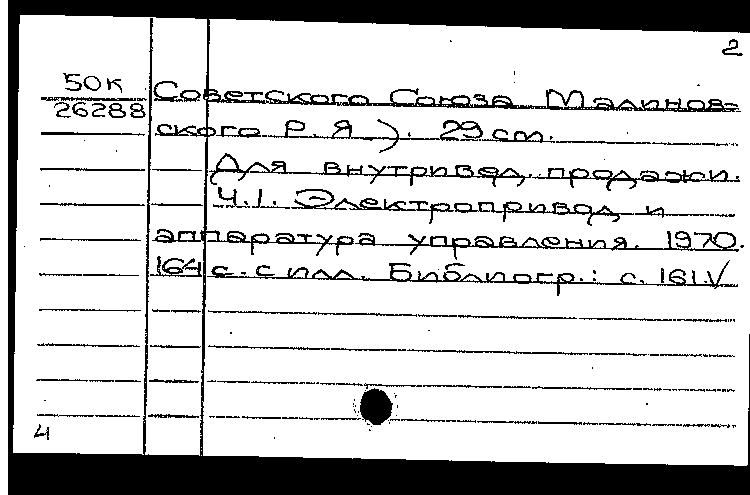 2
50К
26288
Советского Союза Малинов-
ского Р. Я ). 29 см.
Для внутривед. продажи.
Ч.1. Электропривод и
аппаратура управления. 1970.
164 с. с илл. Библиогр.: с. 161.V
4